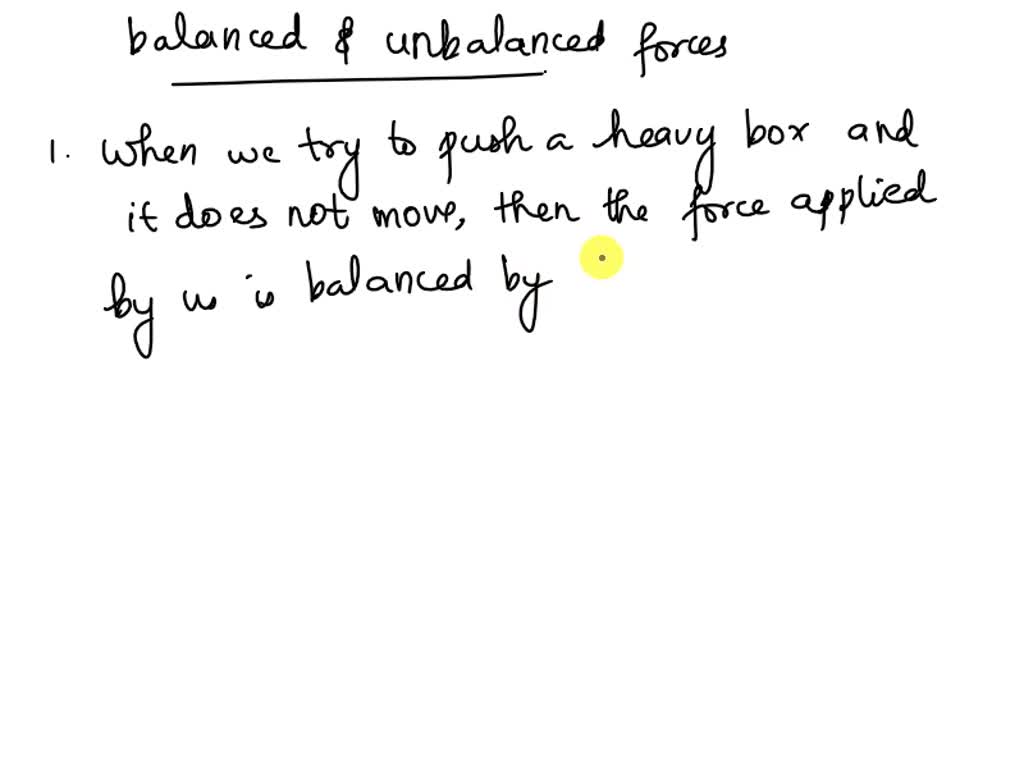 balanced & unbalanced forces
1. When we try to push a heavy box and
it does not move, then the force applied
by us is balanced by